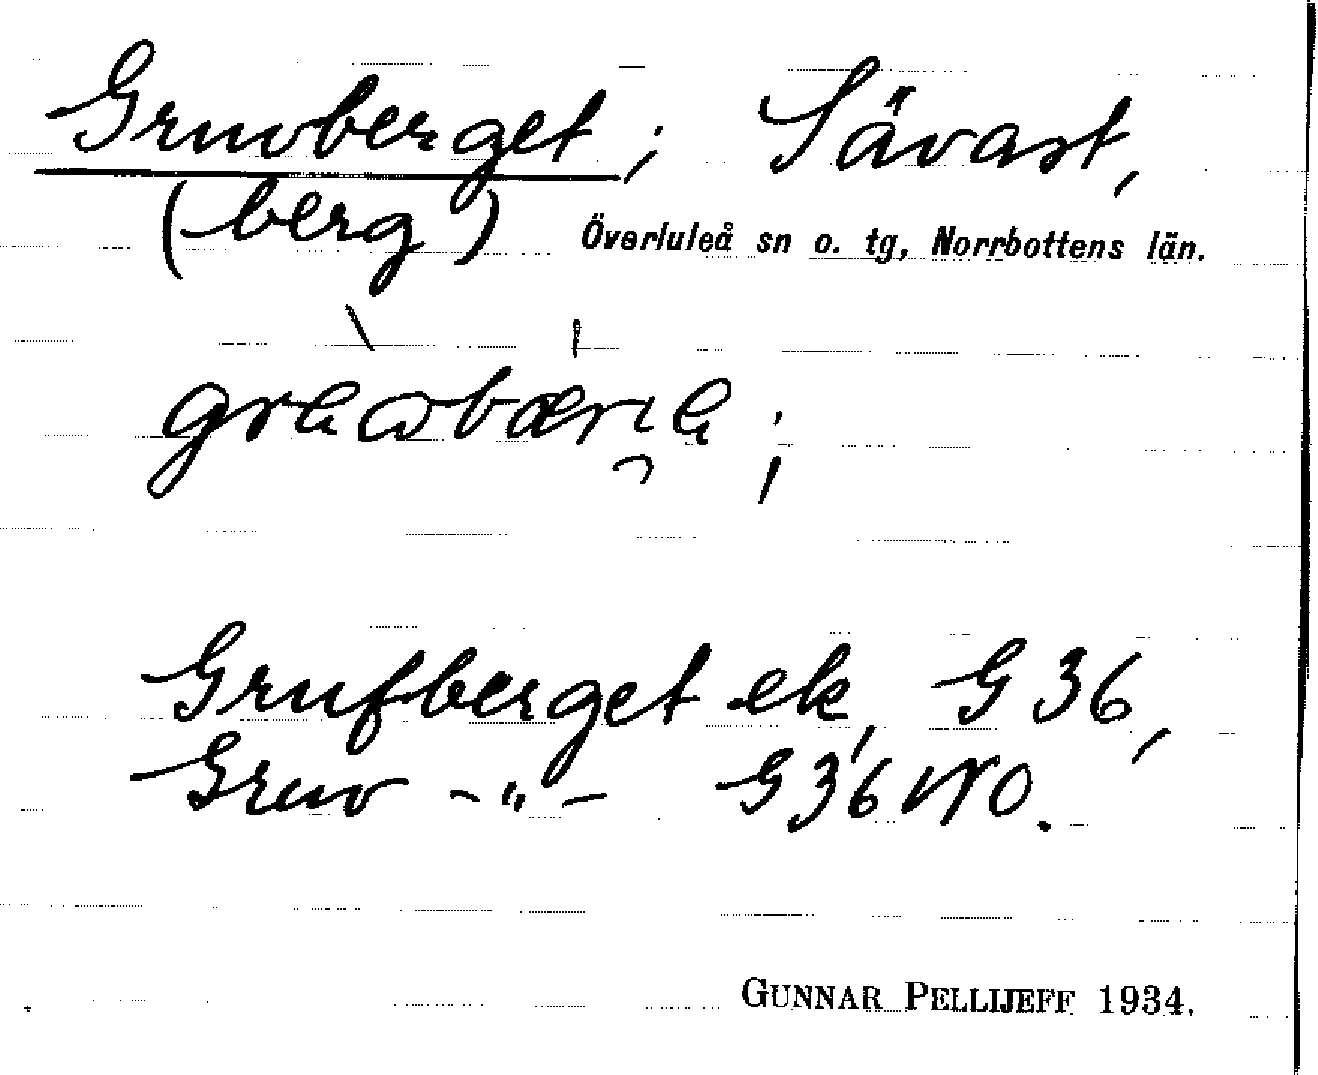 Gruvberget; Sävast,
(berg) Överluleå sn o. tg, Norrbottens län.
Grufberget ek, G 36,
Gruv -"- G 36 NO.
GUNNAR PELLIJEFF 1934.